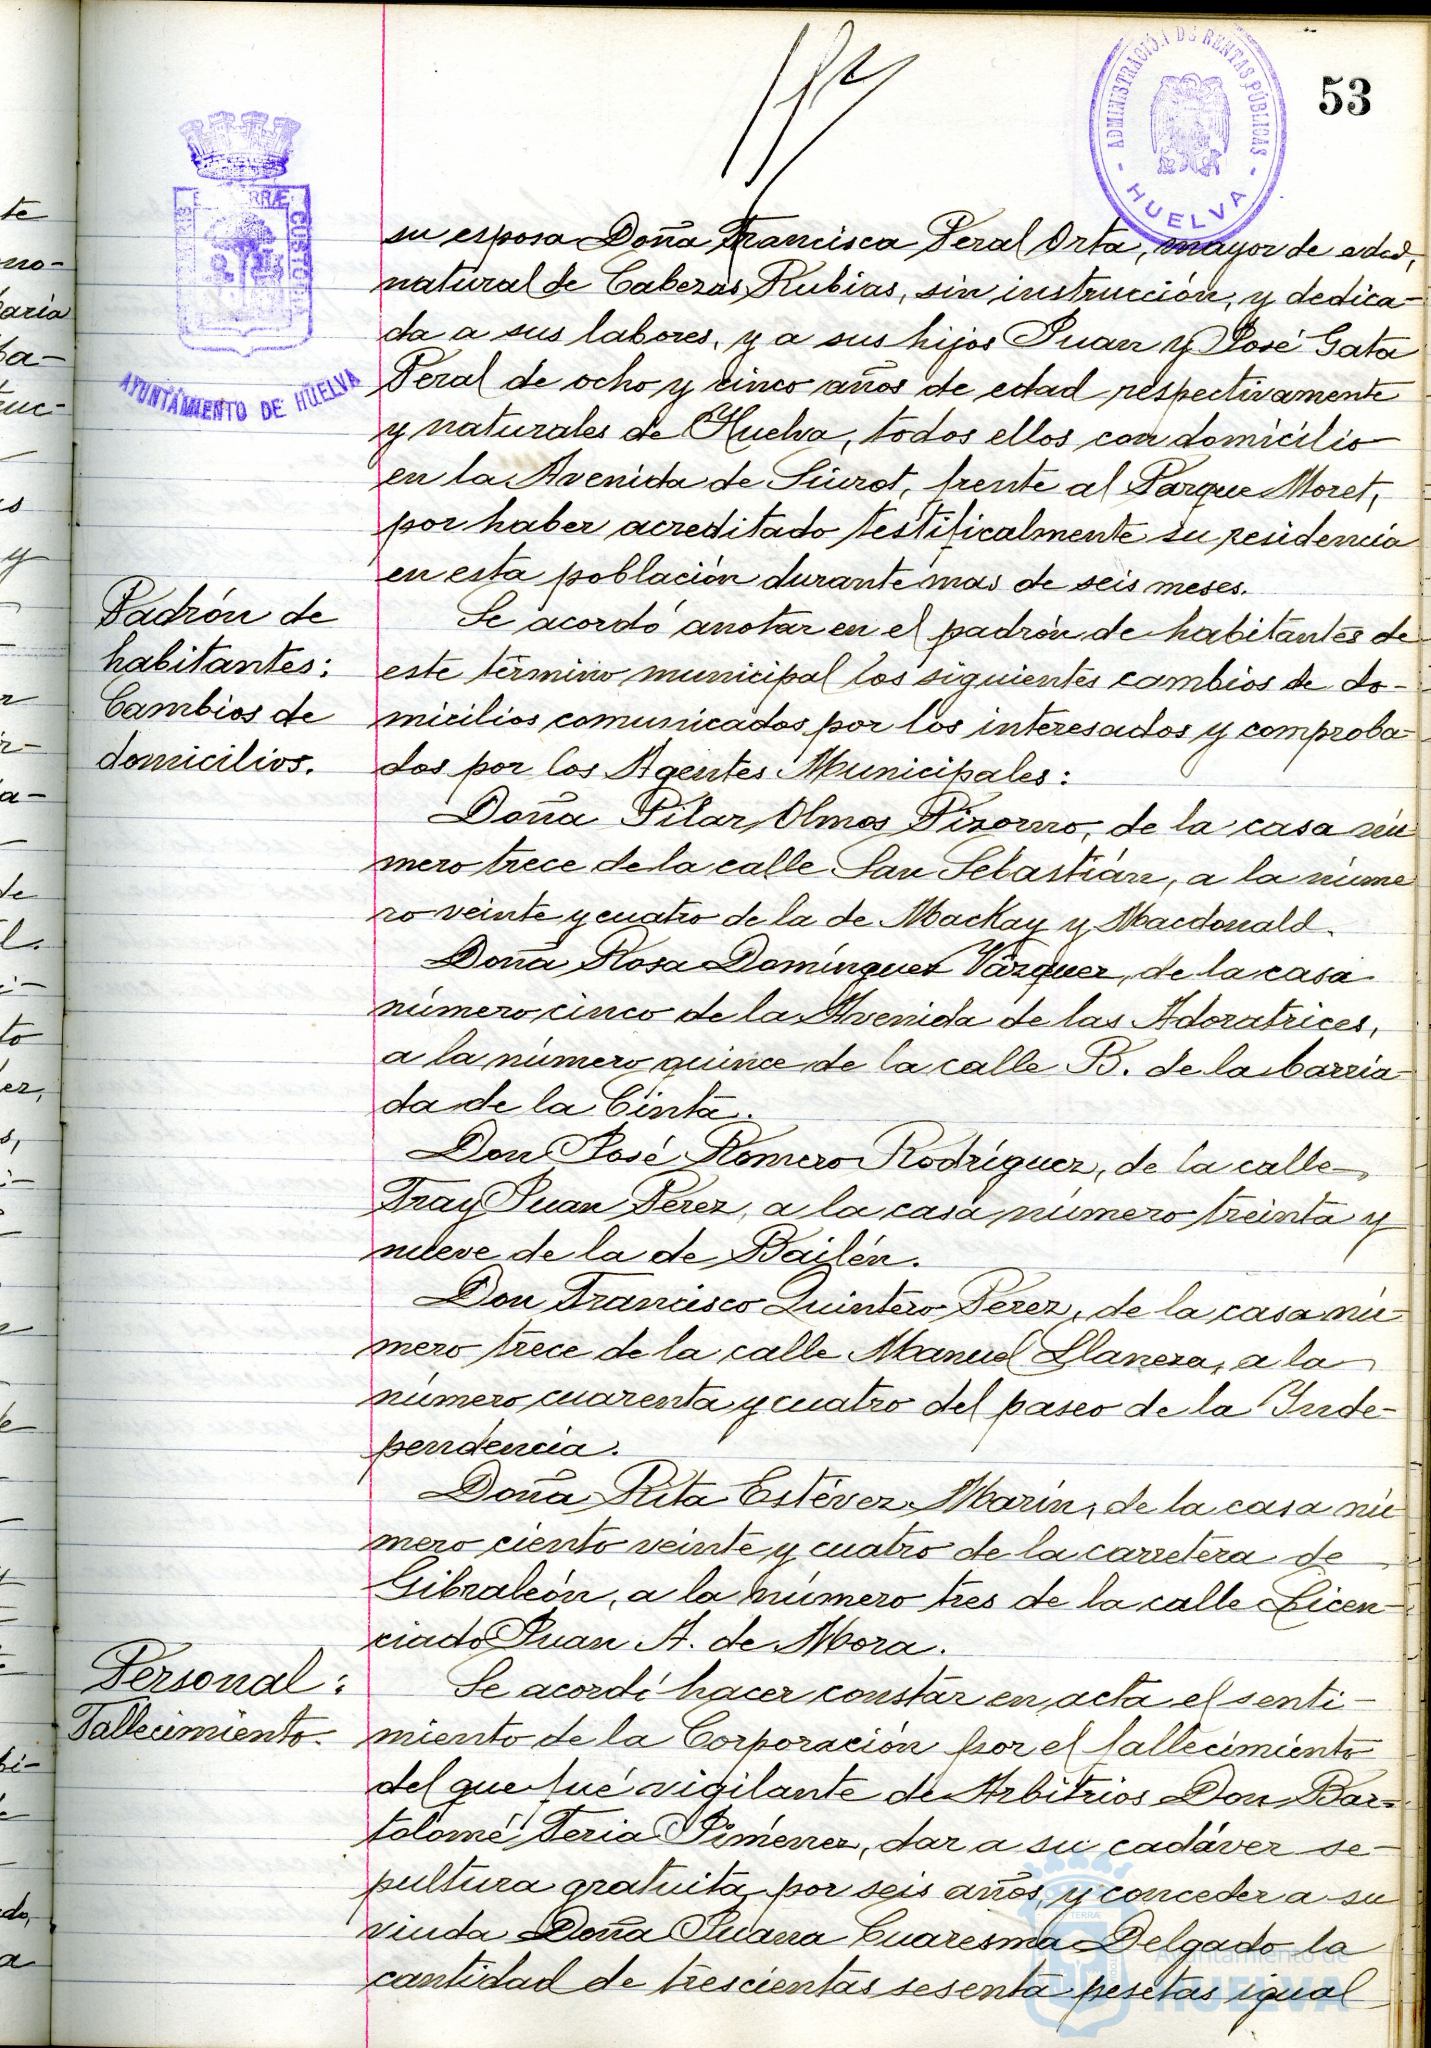 53
ADMINISTRACIÓN DE RENTAS PÚBLICAS
- HUELVA -
AYUNTAMIENTO DE HUELVA
su esposa Doña Francisca Peral Orta, mayor de edad,
natural de Cabezas Rubias, sin instrucción, y dedica-
da a sus labores, y a sus hijos Juan y José Gata
Peral de ocho y cinco años de edad respectivamente
y naturales de Huelva, todos ellos con domicilio
en la Avenida de Siurot, frente al Parque Moret,
por haber acreditado testificalmente su residencia
en esta población durante mas de seis meses.
Padrón de
habitantes:
Cambios de
domicilios.
Se acordó anotar en el padrón de habitantes de
este término municipal los siguientes cambios de do-
micilios comunicados por los interesados y comproba-
dos por los Agentes Municipales:
Doña Pilar Olmos Pizorno, de la casa nú
mero trece de la calle San Sebastián, a la núme
ro veinte y cuatro de la de Mackay y Macdonald.
Doña Rosa Domínguez Vázquez, de la casa
número cinco de la Avenida de las Adoratrices,
a la número quince de la calle B. de la barria-
da de la Cinta.
Don José Romero Rodríguez, de la calle
Fray Juan Pérez, a la casa número treinta y
nueve de la de Bailén.
Don Francisco Quintero Pérez, de la casa nú-
mero trece de la calle Manuel Llaneza, a la
número cuarenta y cuatro del paseo de la Inde-
pendencia.
Doña Rita Estévez Marín, de la casa nú-
mero ciento veinte y cuatro de la carretera de
Gibraleón, a la número tres de la calle Licen-
ciado Juan A. de Mora.
Personal:
Fallecimiento.
Se acordó hacer constar en acta el senti-
miento de la Corporación por el fallecimiento
del que fué vigilante de Arbitrios Don Bar-
tolomé Feria Jiménez, dar a su cadáver se-
pultura gratuita por seis años, y conceder a su
viuda Doña Juana Cuaresma Delgado la
cantidad de trescientas sesenta pesetas igual
Ayuntamiento de
HUELVA